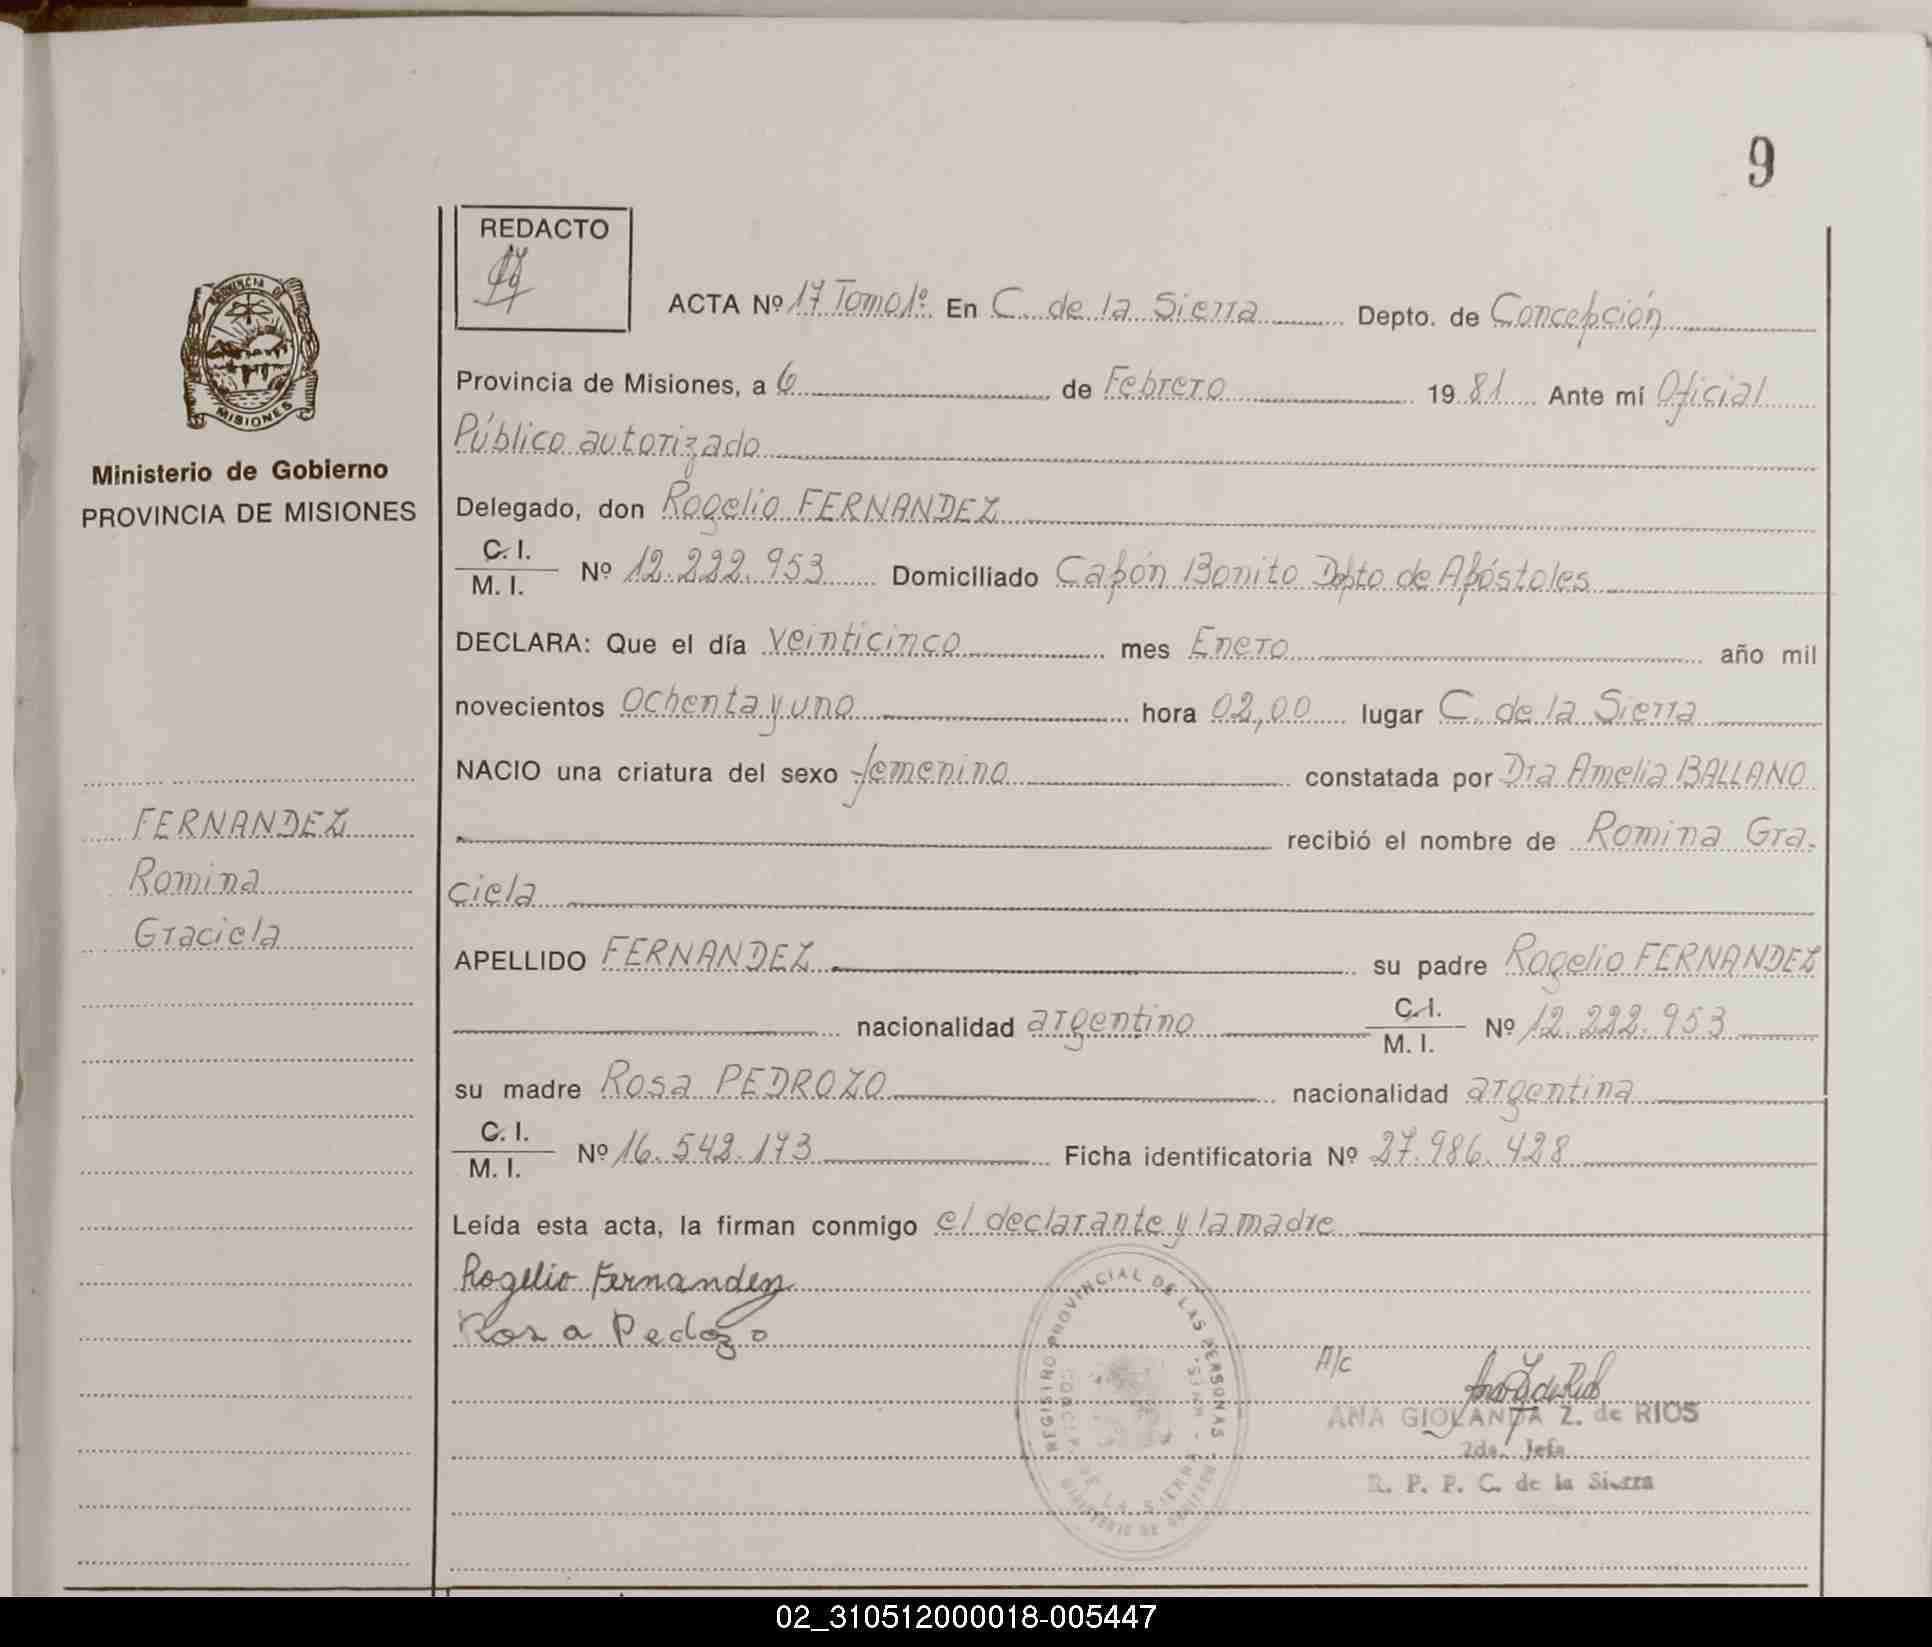 9
REDACTO
ACTA Nº 17 Tomo 1º En C. de la Sierra Depto. de Concepción
Provincia de Misiones, a 6 de Febrero 1981 Ante mí Oficial
Público autorizado
Delegado, don Rogelio FERNANDEZ
C. I.
M. I. Nº 12.222.953 Domiciliado Capón Bonito Dpto de Apóstoles
DECLARA: Que el día veinticinco mes Enero año mil
novecientos ochenta y uno hora 02,00 lugar C. de la Sierra
NACIO una criatura del sexo femenino constatada por Dra Amelia BALLANO
recibió el nombre de Romina Gra-
ciela
APELLIDO FERNANDEZ su padre Rogelio FERNANDEZ
nacionalidad argentino C. I.
M. I. Nº 12.222.953
su madre Rosa PEDROZO nacionalidad argentina
C. I.
M. I. Nº 16.542.173 Ficha identificatoria Nº 27.986.428
Leída esta acta, la firman conmigo el declarante y la madre
Rogelio Fernandez
Rosa Pedozo
A/c
ANA GIOLANDA Z. de RIOS
2da. Jefa
R. P. P. C. de la Sierra
REGISTRO PROVINCIAL DE LAS PERSONAS
PROVINCIA DE
MISIONES
Ministerio de Gobierno
PROVINCIA DE MISIONES
FERNANDEZ
Romina
Graciela
02_310512000018-005447